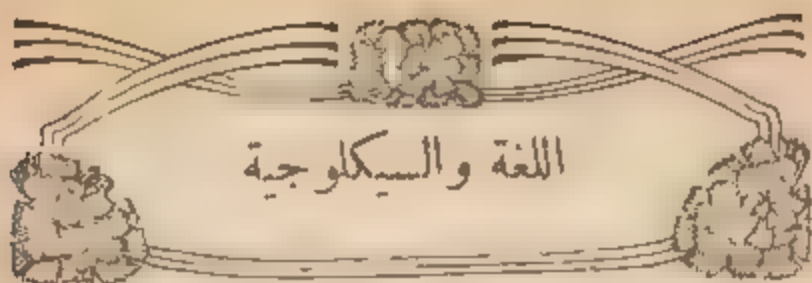 اللغة والسيكلوجية